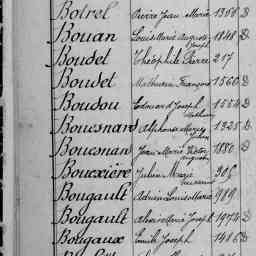 Botrel Pierre Jean Marie 1358 D
Bouan Louis Marie Auguste Joseph 1848 D
Boudet Théophile Pierre 217
Boudet Mathurin François 1560 D
Boudou Edouard Joseph 1554 D
Bouesnard Alphonse 1325 D
Bouesnard Jean Marie Victor 1880 D
Bouexière Julien Marie 306
Bougault Adrien Louis Marie 989
Bougault Marie Joseph 1974 D
Bougaux Emile Joseph 1486 D